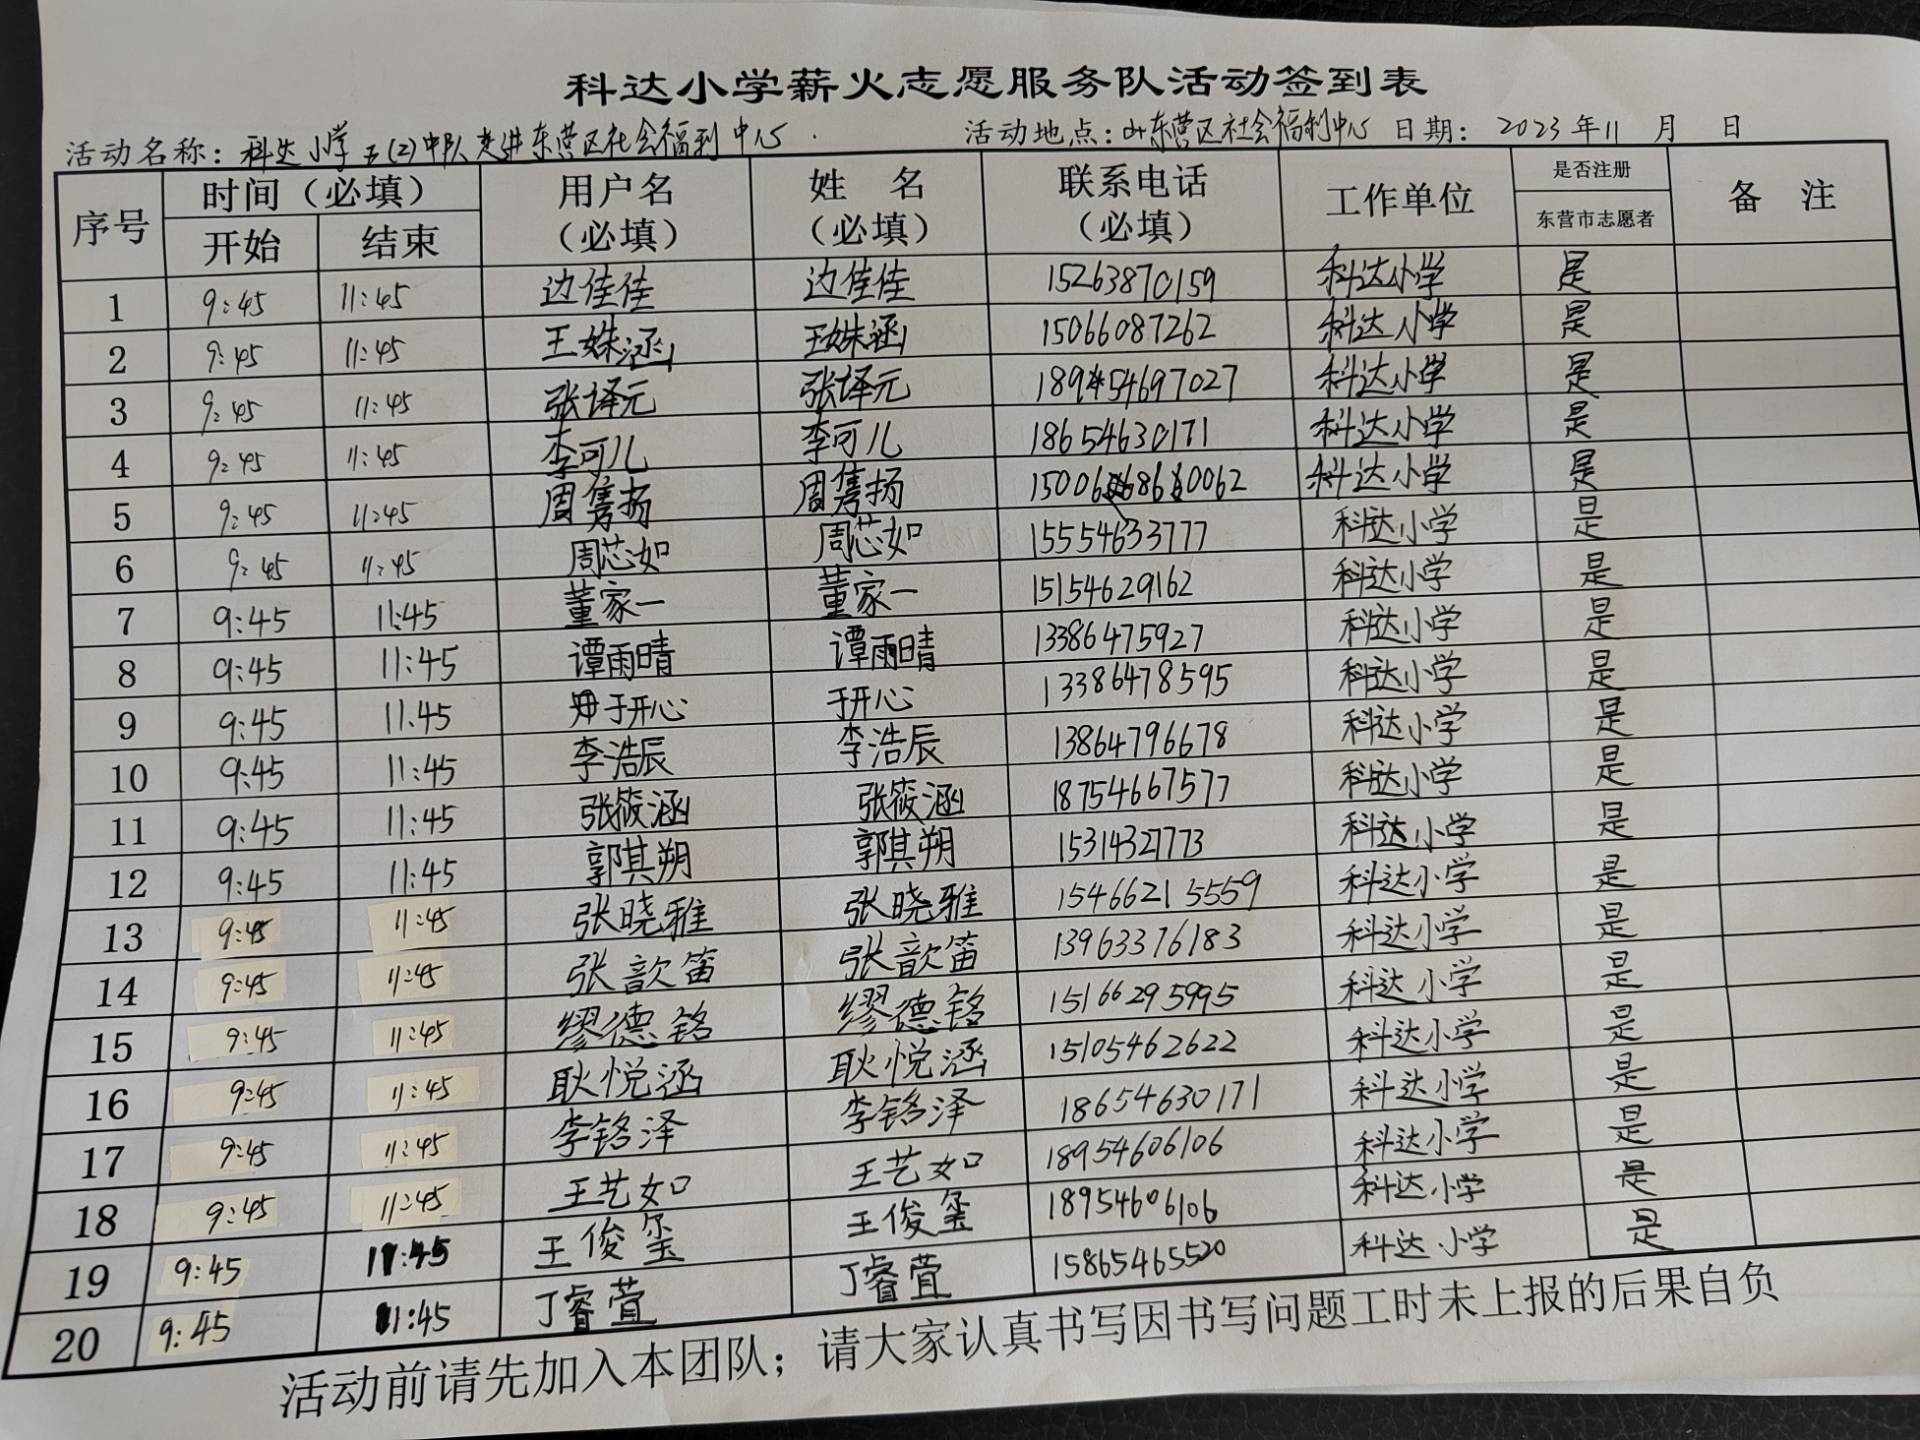 科达小学薪火志愿服务队活动签到表
活动名称：科达小学五(2)中队走进东营区社会福利中心 活动地点：东营区社会福利中心 日期： 2023年11月 日
序号 时间（必填） 用户名（必填） 姓 名（必填） 联系电话（必填） 工作单位 是否注册 备 注
开始 结束 东营市志愿者
1 9:45 11:45 边佳佳 边佳佳 15263870159 科达小学 是
2 9:45 11:45 王姝涵 王姝涵 15066087262 科达小学 是
3 9:45 11:45 张译元 张译元 18954697027 科达小学 是
4 9:45 11:45 李可儿 李可儿 18654630171 科达小学 是
5 9:45 11:45 周隽扬 周隽扬 科达小学 是
6 9:45 11:45 周芯如 周芯如 15554633777 科达小学 是
7 9:45 11:45 董家一 董家一 15154629162 科达小学 是
8 9:45 11:45 谭雨晴 谭雨晴 13386475927 科达小学 是
9 9:45 11:45 于开心 于开心 13386478595 科达小学 是
10 9:45 11:45 李浩辰 李浩辰 13864796678 科达小学 是
11 9:45 11:45 张筱涵 张筱涵 18754667577 科达小学 是
12 9:45 11:45 郭其朔 郭其朔 15314327773 科达小学 是
13 9:45 11:45 张晓雅 张晓雅 15466215559 科达小学 是
14 9:45 11:45 张歆笛 张歆笛 13963376183 科达小学 是
15 9:45 11:45 缪德铭 缪德铭 15166295995 科达小学 是
16 9:45 11:45 耿悦涵 耿悦涵 15105462622 科达小学 是
17 9:45 11:45 李铭泽 李铭泽 18654630171 科达小学 是
18 9:45 11:45 王艺如 王艺如 18954606106 科达小学 是
19 9:45 11:45 王俊玺 王俊玺 18954606106 科达小学 是
20 9:45 11:45 丁睿萱 丁睿萱 15865465520 科达小学 是
活动前请先加入本团队；请大家认真书写因书写问题工时未上报的后果自负